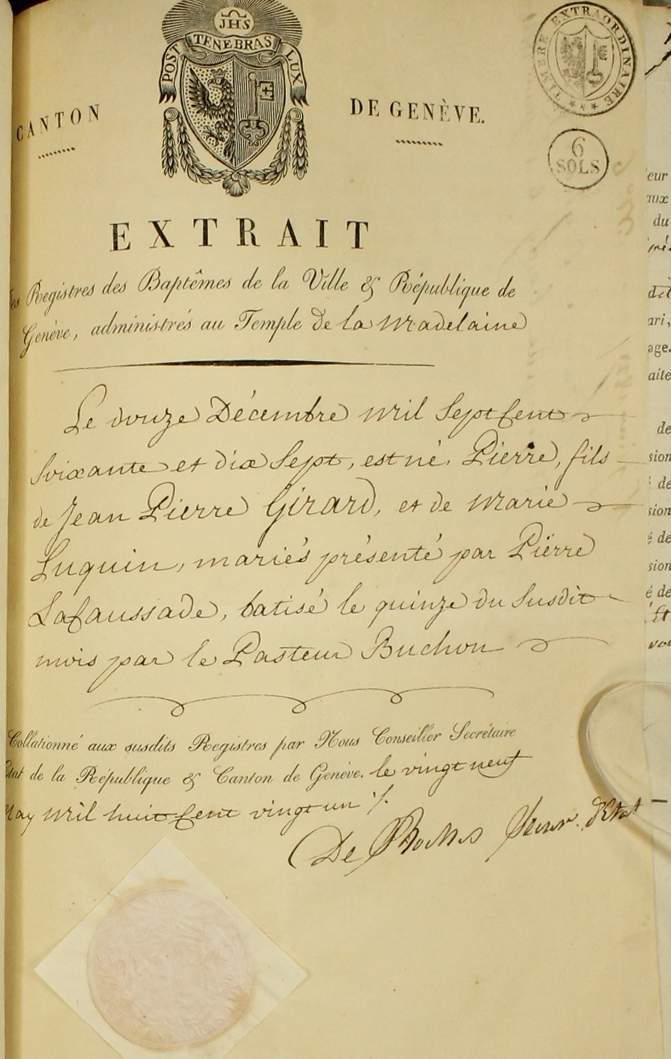 JHS
POST TENEBRAS LUX
TIMBRE EXTRAORDINAIRE
6
SOLS
CANTON DE GENÈVE.
EXTRAIT
des Registres des Baptêmes de la Ville & République de
Genève, administrés au Temple de la Madelaine
Le douze Décembre mil Sept Cent
Soixante et dix Sept, est né, Pierre, fils
de Jean Pierre Girard, et de Marie
Luquin, mariés présenté par Pierre
Lafaussade, batisé le quinze du susdit
mois par le Pasteur Buchon
Collationné aux susdits Registres par Nous Conseiller Secrétaire
d'Etat de la République & Canton de Genève. le vingt neuf
May mil huit Cent vingt un
De
eur
aux
du
ari,
age.
aite
de
sion
de
sion
é de
sion
é de